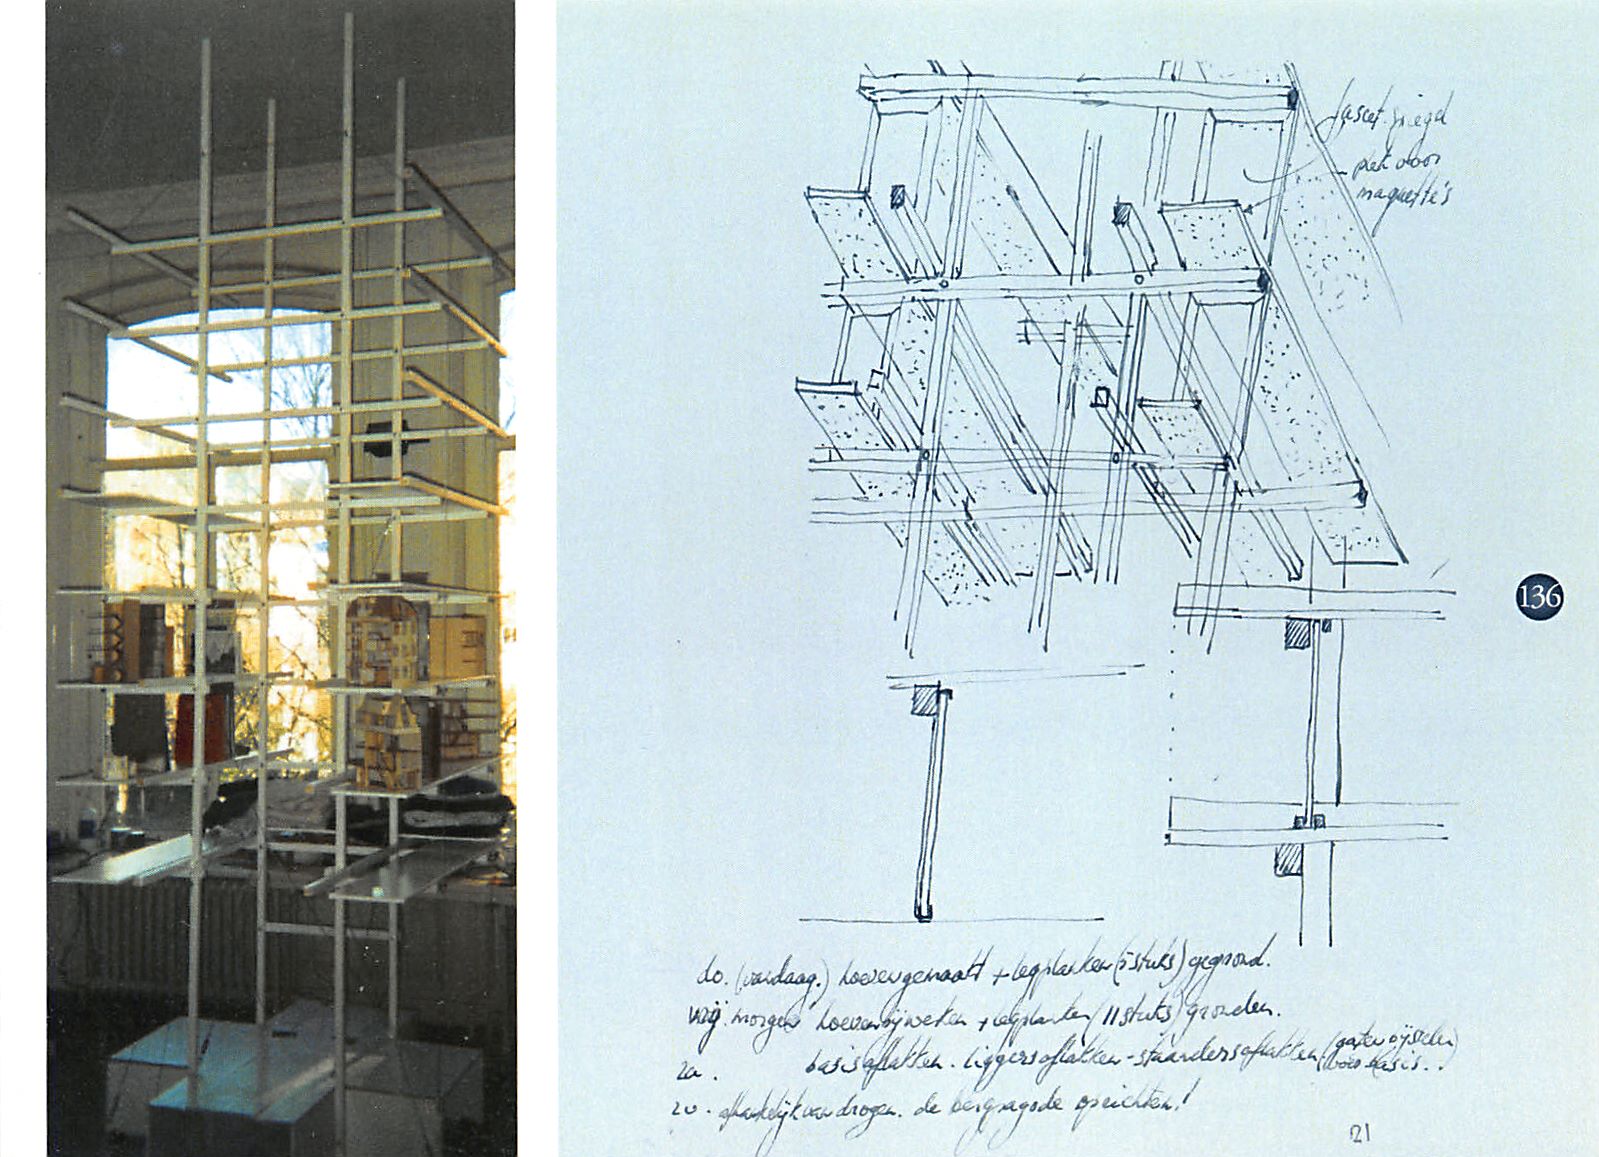 pleh voor
maquette's
136
do. (vandaag.) hoeven gemaakt + legplanken (5 stuks) gegrond.
vrij. morgen hoeven bijwerken + legplanken (11 stuks) gronden.
za. basis aflakken. liggers aflakken - staanders aflakken. (gaten vijzelen
voor basis..
zo. afhankelijk van drogen. de bergpagode oprichten!
21